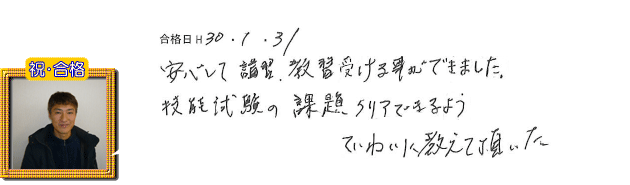 合格日 H 30.1.31
祝・合格
安心して講習、教習受ける事ができました。
技能試験の課題クリアできるよう
ていねいに教えて頂いた